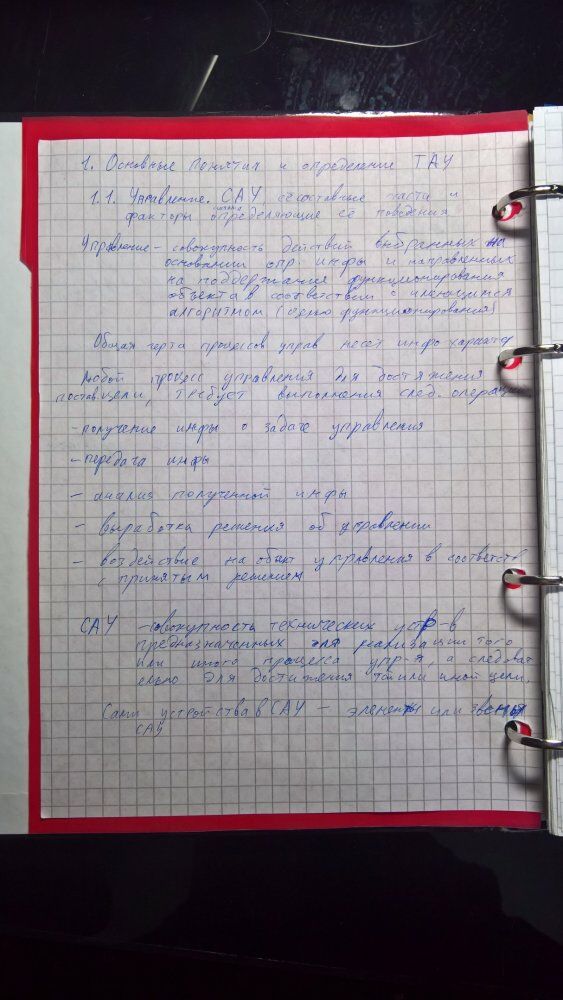 1. Основные понятия и определении ТАУ
1.1. Управление. САУ, её составные части и
факторы определяющие её поведения
Управление - совокупность действий выбранных на
основании опр. инфы и направленных
на поддержания функционирования
объекта в соответствии с имеющимся
алгоритмом (целью функционирования)
Общая черта процессов управ несёт инфо характер
Любой процесс управления для достяжения
постав цели, требует выполнения след. операц
- получение инфы о задаче управления
- передача инфы
- анализ полученной инфы
- выработка решения об управлении
- воздействие на объкт управления в соответств
с принятым решением
САУ - совокупность технических устр-в
предназначенных для реализации того
или иного процесса упр-я, а следоват
ельно для достижения той или иной цели.
Сами устройства в САУ - элементы или звенья
САУ